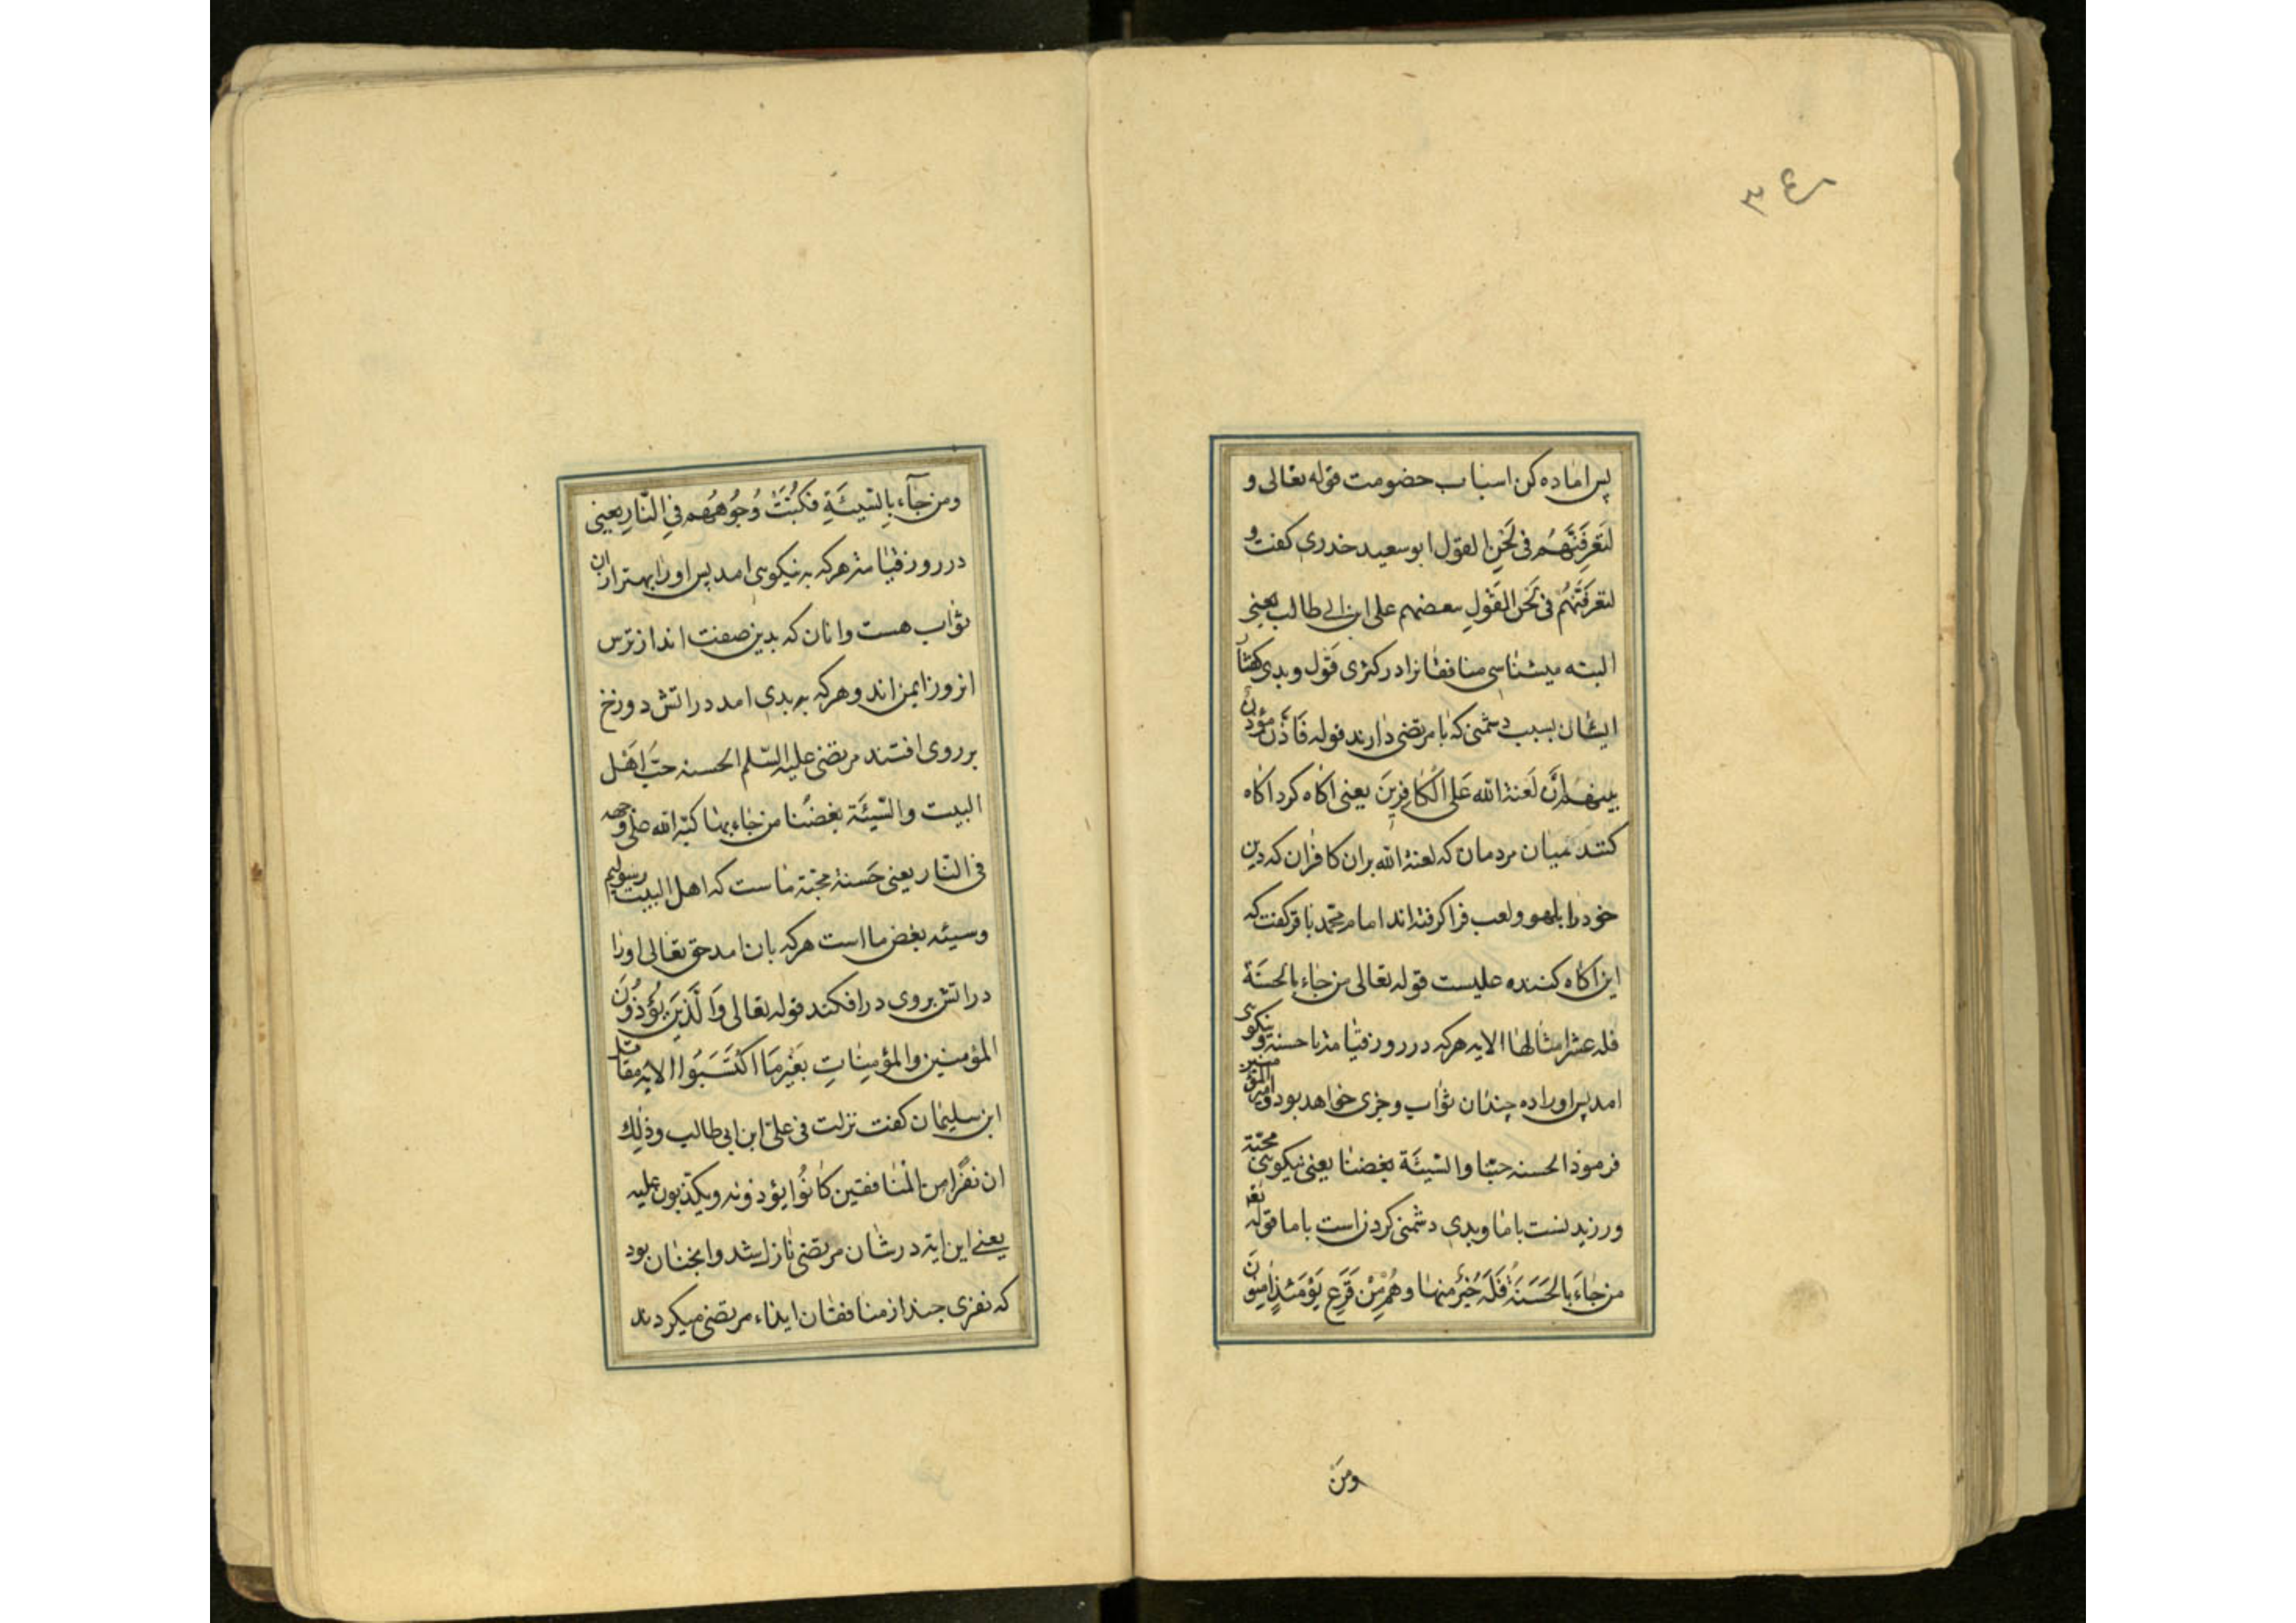 ۳٤
پس اماده کن اسباب خصومت قوله تعالی و
لَتَعرِفَنَّهُم فی لَحْنِ القول ابو سعید خدری کفت و
لتعرفَنَّهُم فی لَحَن القَولِ ببعضهم علی ابن ابی طالب یعنی
البته میشناسی منافقانرا در کژی قَول و بدی کفتار
ایشان بسبب دشمنی که با مرتضی دارند قوله فَاَذَّنَ مُؤذنٌ
بینهم اَنَّ لَعنة الله عَلی الکافِرینَ یعنی اکاه کرد اکاه
کننده میان مردمان که لعنة الله بران کافران که دین
خود را بلهو و لعب فرا کرفته اند امام محمّد باقر کفت که
این اکاه کننده علیست قوله تعالی من جاء بالحسنَة
فله عشر امثالها الایه هر که در روز قیامة با حسنة و نیکویی
امد پس او را ده چندان ثواب و جزی خواهد بود و امیر المؤمنین
فرموذ الحسنه حبّنا والسّیئَة بغضنا یعنی نیکویی محبّة
ورزیدنست با ما و بدی دشمنی کردنست با ما قوله تعا
من جاءَ بالحَسَنَةِ فَلَهُ خَیرٌ منها وهُم مِنْ فَزَعٍ یَوْمَئذٍ امِنونَ
ومَن
ومن جآء بالسّیئَةِ فَکُبَّتْ وُجُوهُهُم فِی النّارِ یعنی
در روز قیامة هر که به نیکویی امد پس او را بهتر ازان
ثواب هست وانان که بدین صفت اند از ترس
انروز ایمن اند و هر که به بدی امد در اتش دوزخ
بر روی افتند مرتضی علیه السّلم الحسنه حبّ اَهل
البیت والسّیئَة بغضُنا من جاء بها کبّه الله علی وجهه
فی النّار یعنی حَسنة محبّة ماست که اهل البیت رسولیم
و سیئه بغض ما است هر که بان امد حق تعالی او را
در اتش بروی در افکند قوله تعالی وَالَّذینَ یُؤذُونَ
المؤمنین والمؤمِناتِ بغَیرِ مَا اکْتَسَبُوا الایه مقاتل
ابن سلیمان کفت نزلت فی علیّ ابن ابی طالب وذٰلک
ان نفرًا من المُنافقین کانُوا یؤذونه ویکذبون علیه
یعنی این ایه در شان مرتضی نازل شد وانچنان بود
که نفری چند از منافقان ایذاء مرتضی میکردند